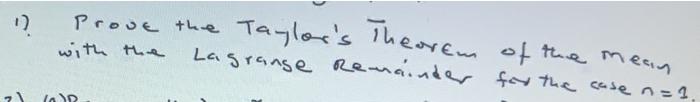 1) Prove the Taylor's Theorem of the mean
with the Lagrange Remainder for the case n=1
2) (a)